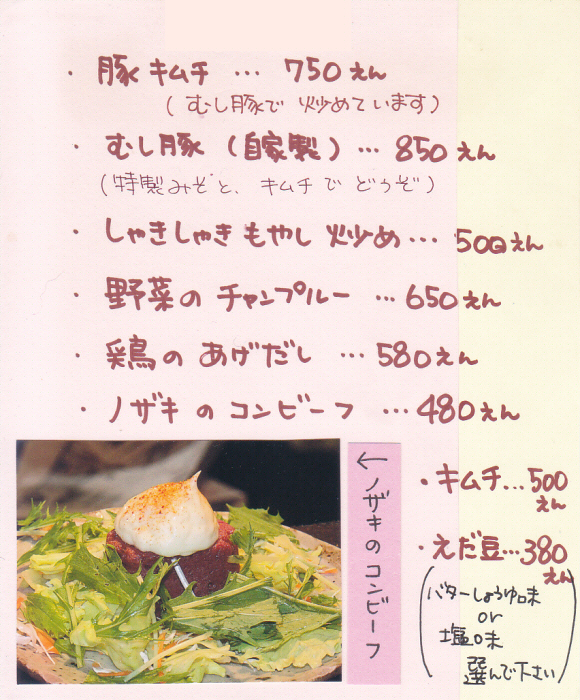 ・豚キムチ … 750えん
(むし豚で 炒めています)
・むし豚 (自家製) … 850えん
(特製みそと、キムチで どうぞ)
・しゃきしゃき もやし 炒め … 500えん
・野菜の チャンプルー … 650えん
・鶏の あげだし … 580えん
・ノザキ の コンビーフ … 480えん
←ノザキのコンビーフ
・キムチ…500
えん
・えだ豆…380
えん
(バターしょうゆ味
or
塩味
選んで下さい)